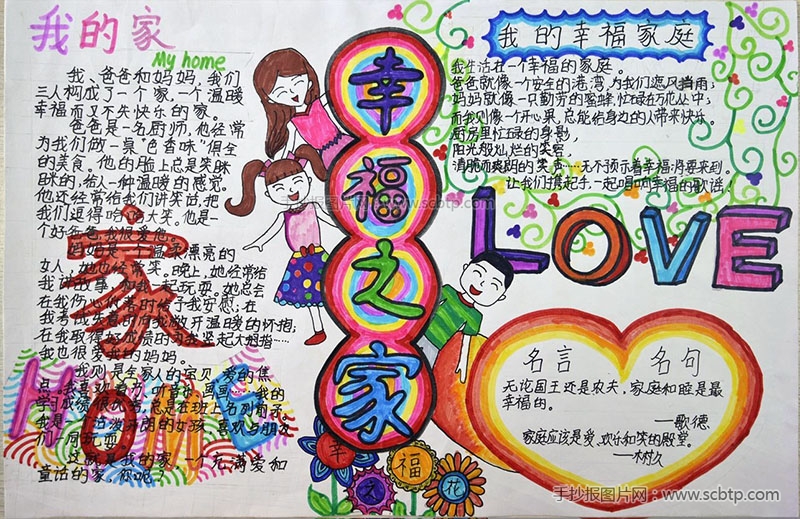 我的家
My home
我、爸爸和妈妈，我们
三人构成了一个家，一个温暖
幸福而又不失快乐的家。
爸爸是一名厨师，他经常
为我们做一桌“色香味”俱全
的美食。他的脸上总是笑眯
眯的，给人一种温暖的感觉。
他还经常给我们讲笑话，把
我们逗得哈哈大笑。他是一
个好爸爸，我很爱他。
妈妈是一个温柔漂亮的
女人，她也经常笑。晚上，她经常给
我讲故事，和我一起玩耍。她总会
在我伤心
时给予我安慰；在
我考试失
时向我敞开温暖的怀抱；
在我取得好成绩的
为我竖起大拇指……
我也很爱我的妈妈。
我则是全家人的宝贝
爱的焦
点。我喜欢看书、听音乐、画画……我的
学习成绩很优秀，总是在班上名列前茅。
我是一个活泼开朗的女孩，喜欢与朋友
们一同玩耍。
这就是我的家，一个充满爱和
童话的家，你呢？
家
HOME
幸福之家
幸之福花
我的幸福家庭
我生活在一个幸福的家庭。
爸爸就像一个安全的港湾，为我们遮风挡雨；
妈妈就像一只勤劳的蜜蜂，忙碌在花丛中；
而我则像一个开心果，总能给身边的人带来快乐。
厨房里忙碌的身影，
阳光般灿烂的笑容，
清脆而爽朗的笑声……无不预示着幸福将要来到。
让我们携起手，一起唱响幸福的歌谣！
LOVE
名言 名句
无论国王还是农夫，家庭和睦是最
幸福的。
——歌德
家庭应该是爱、欢乐和笑的殿堂。
——木村久一
手抄报图片网：www.scbtp.com
手抄报图片网：www.scbtp.com